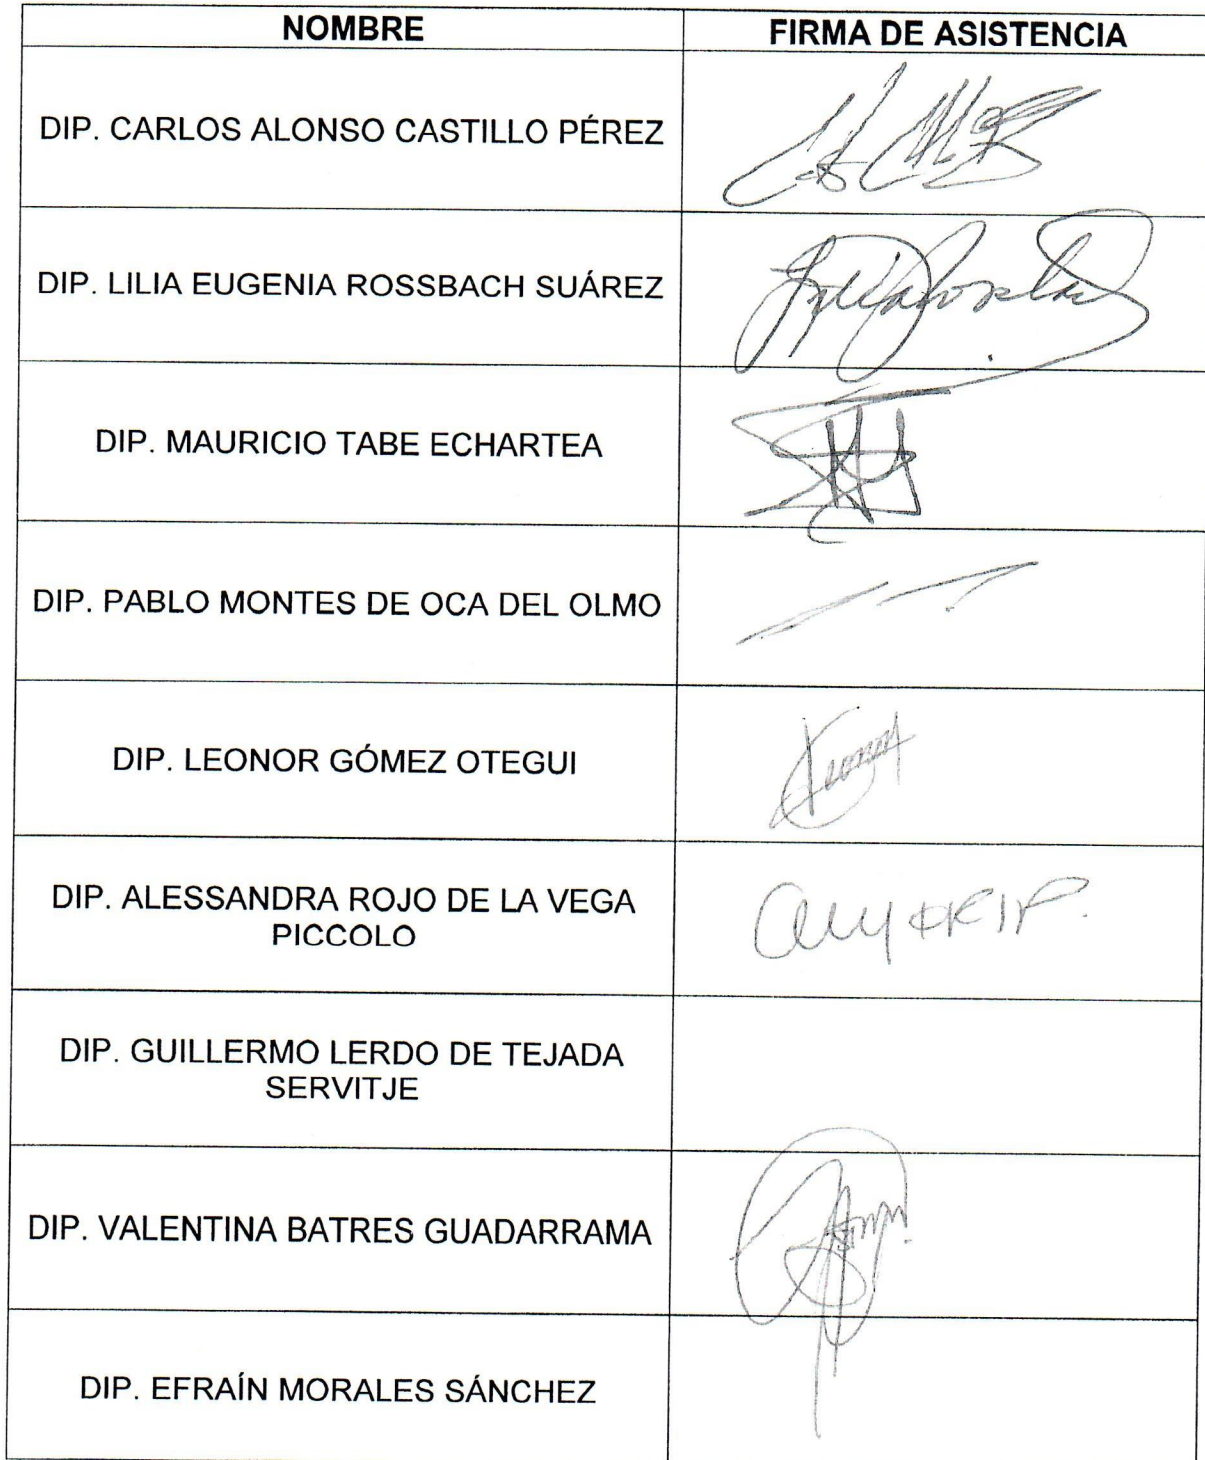 NOMBRE FIRMA DE ASISTENCIA
DIP. CARLOS ALONSO CASTILLO PÉREZ
DIP. LILIA EUGENIA ROSSBACH SUÁREZ
DIP. MAURICIO TABE ECHARTEA
DIP. PABLO MONTES DE OCA DEL OLMO
DIP. LEONOR GÓMEZ OTEGUI
DIP. ALESSANDRA ROJO DE LA VEGA
PICCOLO
DIP. GUILLERMO LERDO DE TEJADA
SERVITJE
DIP. VALENTINA BATRES GUADARRAMA
DIP. EFRAÍN MORALES SÁNCHEZ